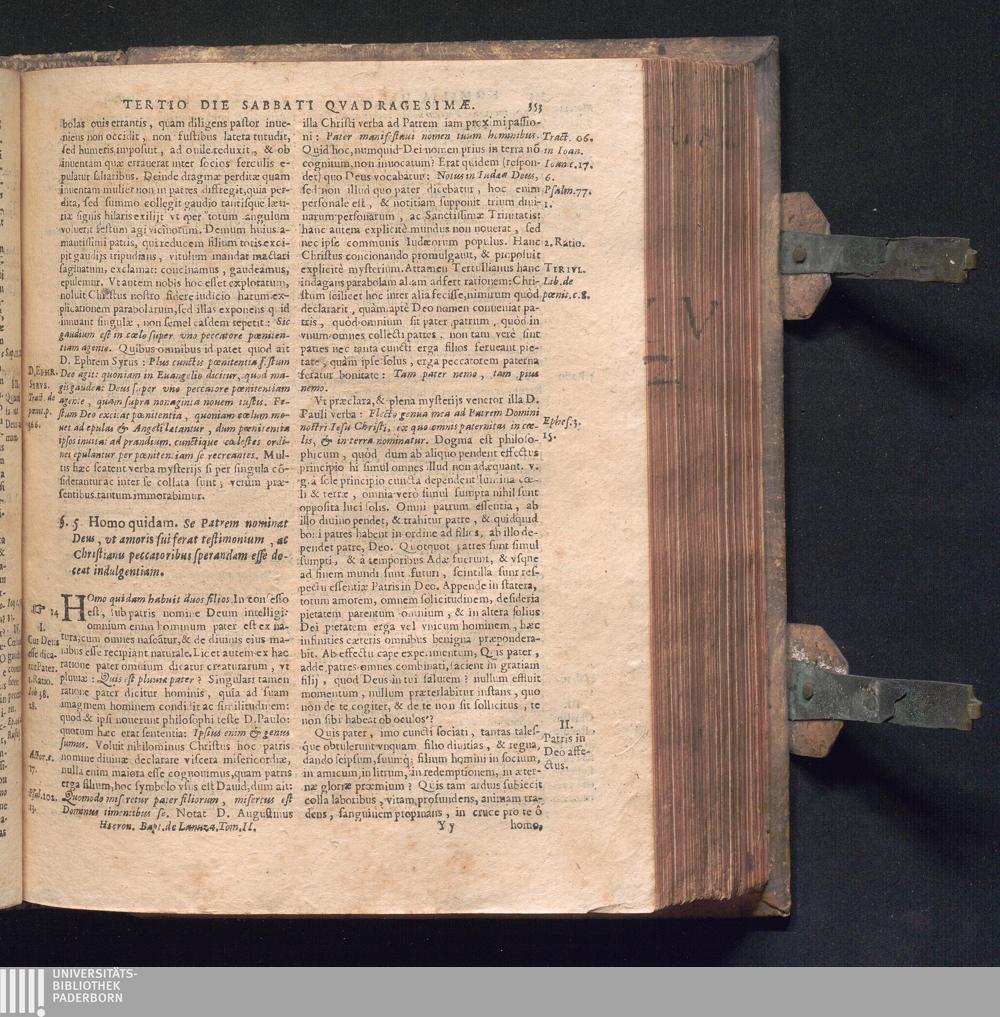 TERTIO DIE SABBATI QVADRAGESIMÆ. 353
bolas ouis errantis, quam diligens pastor inue-
niens non occidit, non fustibus latera tutudit,
sed humeris imposuit, ad ouile reduxit, & ob
inuentam quæ errauerat inter socios ferculis e-
pulatur saliaribus. Deinde dragmæ perditæ quam
inuentam mulier non in partes diffregit, quia per-
dita, sed summo collegit gaudio tantisque læti-
tiæ signis hilaris exilijt vt per totum angulum
voluerit festum agi vicinorum. Demum huius a-
mantissimi patris, qui reducem filium totis exci-
pit gaudijs tripudians, vitulum mandat mactari
saginatum, exclamat: concinamus, gaudeamus,
epulemur. Vt autem nobis hoc esset exploratum,
noluit Christus nostro fidere iudicio harum ex-
plicationem parabolarum, sed illas exponens quid
innuant singulæ, non semel easdem repetit: Sic
gaudium est in cœlo super vno peccatore pœniten-
tiam agente. Quibus omnibus id patet quod ait
D. Ephrem Syrus: Plus cunctis pœnitentia festum
Deo agit: quoniam in Euangelio dicitur, quod ma-
gis gaudeat Deus super vno peccatore pœnitentiam
agente, quam supra nonaginta nouem iustis. Fe-
stum Deo excitat pœnitentia, quoniam cœlum mo-
uet ad epulas & Angeli lætantur, dum pœnitentia
ipsos inuitat ad prandium. cunctique cœlestes ordi-
nes epulantur per pœnitentiam se recreantes. Mul-
tis hæc scatent verba mysterijs si per singula cō-
siderantur ac inter se collata sunt; verum præ-
sentibus tantum immorabimur.
D. EPHR.
SIRVS.
Tract. de
pænit. p.
566.
§. 5 Homo quidam. Se Patrem nominat
Deus, vt amoris sui ferat testimonium, ac
Christianis peccatoribus sperandam esse do-
ceat indulgentiam.
HOmo quidam habuit duos filios. In confesso
est, sub patris nomine Deum intelligi:
omnium enim hominum pater est ex na-
tura, cum omnes nascātur, & de diuinis eius ma-
nibus esse recipiant naturale. Licet autem ex hac
ratione pater omnium dicatur creaturarum, vt
pluuiæ: Quis est pluuiæ pater? Singulari tamen
ratione pater dicitur hominis, quia ad suam
imaginem hominem condidit ac similitudinem:
quod & ipsi nouerunt philosophi teste D. Paulo:
quorum hæc erat sententia: Ipsius enim & genus
sumus. Voluit nihilominus Christus hoc patris
nomine diuinæ declarare viscera misericordiæ,
nulla enim maiora esse cognouimus, quam patris
erga filium, hoc symbolo vsus est Dauid, dum ait:
Quomodo miseretur pater filiorum, misertus est
Dominus timentibus se. Notat D. Augustinus
14
I.
Cur Deus
esse dica-
tur Pater.
1. Ratio.
Iob 38.
28.
Actor. c.
17.
Psal. 102.
13.
Hieron. Bapt. de Lanuza, Tom. II.
illa Christi verba ad Patrem iam proximi passio-
ni: Pater manifestaui nomen tuum hominibus.
Quid hoc, numquid Dei nomen prius in terra nō
cognitum, non inuocatum? Erat quidem (respon-
det) quo Deus vocabatur: Notus in Iudæa Deus,
sed non illud quo pater dicebatur, hoc enim
personale est, & notitiam supponit trium diui-
narum personarum, ac Sanctissimæ Trinitatis:
hanc autem explicitè mundus non nouerat, sed
nec ipse communis Iudæorum populus. Hanc
Christus concionando promulgauit, & proposuit
explicitè mysterium. Attamen Tertullianus hanc
indagans parabolam aliam adfert rationem: Chri-
stum scilicet hoc inter alia fecisse, nimirum quòd
declararit, quam aptè Deo nomen conueniat pa-
tris, quòd omnium sit pater patrum, quòd in
vnum omnes collecti patres, non tam verè sint
patres nec tanta cuncti erga filios ferueant pie-
tate, quam ipse solus, erga peccatorem paterna
feratur bonitate: Tam pater nemo, tam pius
nemo.
Vt præclara, & plena mysterijs venetor illa D.
Pauli verba: Flecto genua mea ad Patrem Domini
nostri Iesu Christi, ex quo omnis paternitas in cœ-
lis, & in terra nominatur. Dogma est philoso-
phicum, quòd dum ab aliquo pendent effectus
principio hi simul omnes illud non adæquant. v.
g. à sole principio cuncta dependent lumina cœ-
li & terræ, omnia verò simul sumpta nihil sunt
opposita luci solis. Omni patrum essentia, ab
illo diuino pendet, & trahitur patre, & quidquid
boni patres habent in ordine ad filios, ab illo de-
pendet patre, Deo. Quotquot patres sunt simul
sumpti, & à temporibus Adæ fuerunt, & vsque
ad finem mundi sunt futuri, scintilla sunt res-
pectu essentiæ Patris in Deo. Appende in statera,
totum amorem, omnem solicitudinem, desideria
pietatem parentum omnium, & in altera solius
Dei pietatem erga vel vnicum hominem, hæc
infinities cæteris omnibus benigna præpondera-
bit. Ab effectu cape experimentum, Quis pater,
adde, patres omnes combinati, facient in gratiam
filij, quod Deus in tui salutem? nullum effluit
momentum, nullum præterlabitur instans, quo
nòn de te cogitet, & de te non sit sollicitus, te
non sibi habeat ob oculos?
Quis pater, imo cuncti sociati, tantas tales-
que obtulerunt vnquam filio diuitias, & regna,
dando seipsum, suumq; filium homini in socium,
in amicum, in litrum, in redemptionem, in æter-
næ gloriæ præmium? Quis tam arduis subiecit
colla laboribus, vitam profundens, animam tra-
dens, sanguinem propinans, in cruce pro te ô
Y y homo,
Tract. 06.
in Ioan.
Ioan. c. 17.
6.
Psalm. 77.
1.
2. Ratio.
TERTVL.
Lib. de
pœnit. c. 8.
Ephes. 3.
15.
II.
Patris in
Deo affe-
ctus.
UNIVERSITÄTS-
BIBLIOTHEK
PADERBORN